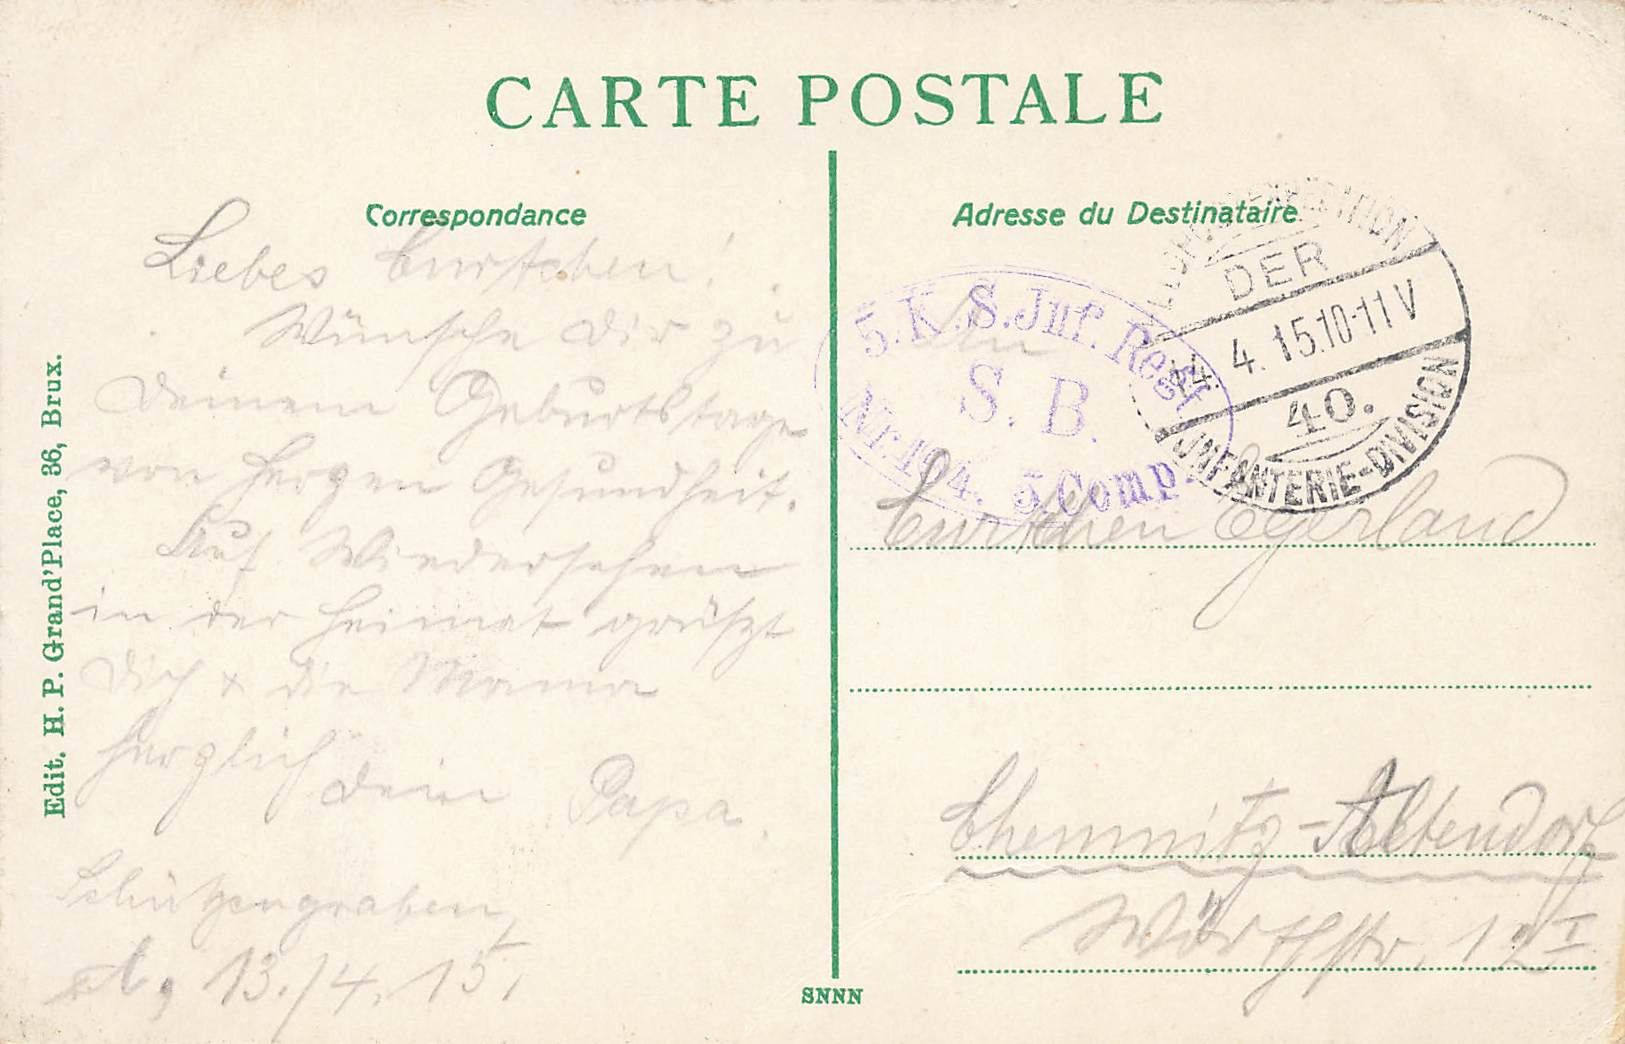 CARTE POSTALE
Correspondance
Liebes Curtchen!
Wünsche Dir zu
Deinem Geburtstage
von Herzen Gesundheit.
Auf Wiedersehen
in der Heimat grüßt
Dich & die Mama
herzlich
Dein Papa.
Schützengraben,
13./4.15.
Edit. H. P. Grand'Place, 36, Brux.
SNNN
Adresse du Destinataire
DER
14. 4. 15.10-11 V
40.
INFANTERIE-DIVISION
5. K. S. Inf. Regt
Nr. 104.
S. B.
5 Comp.
An
Curtchen Egerland
Chemnitz-Altendorf
Wörthstr. 12 I